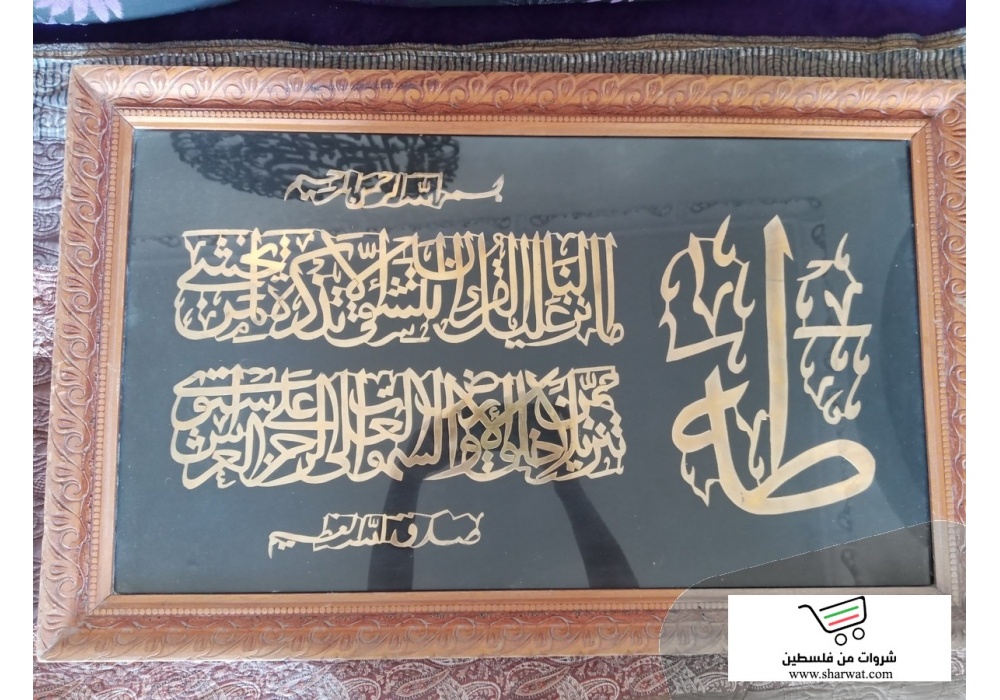 بسم الله الرحمن الرحيم
طه
ما انزلنا عليك القرآن لتشقى إلا تذكرة لمن يخشى
تنزيلا ممن خلق الأرض والسموات العلى الرحمن على العرش استوى
صدق الله العظيم
شروات من فلسطين
www.sharwat.com